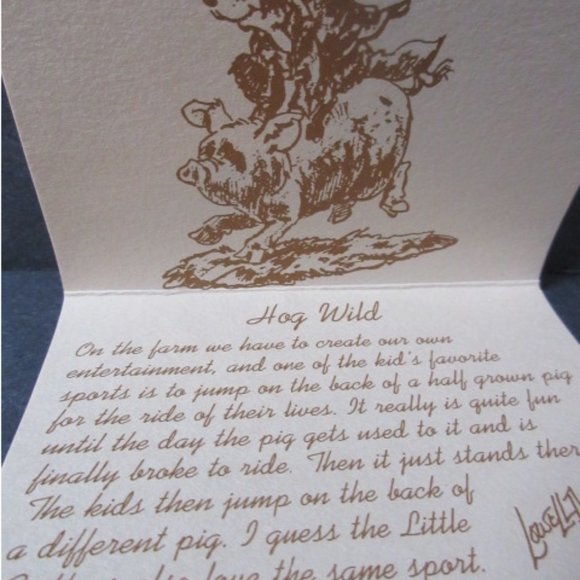 Hog Wild
On the farm we have to create our own
entertainment, and one of the kid's favorite
sports is to jump on the back of a half grown pig
for the ride of their lives. It really is quite fun
until the day the pig gets used to it and is
finally broke to ride. Then it just stands ther
The kids then jump on the back of
a different pig. I guess the Little
love the same sport.